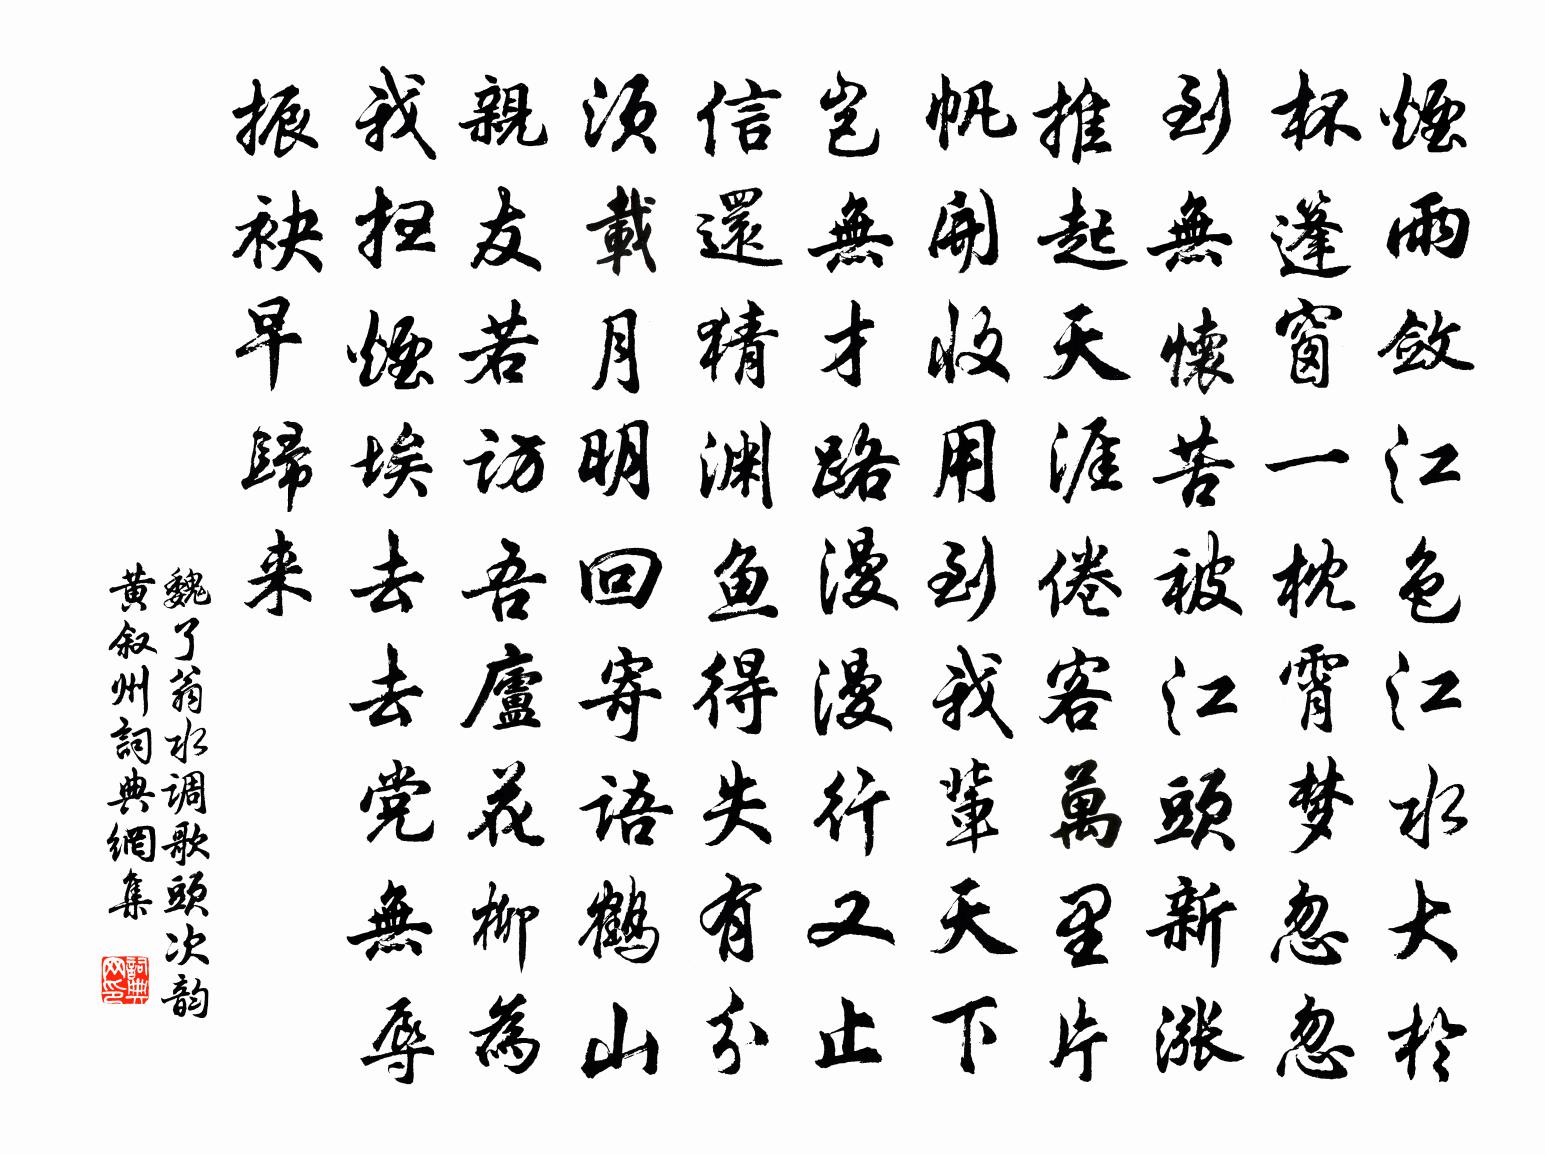 煙雨斂江色江水大於
杯蓬窗一枕宵梦忽忽
到無懷苦被江頭新漲
推起天涯倦客萬里片
帆開收用到我輩天下
岂無才路漫漫行又止
信還猜渊鱼得失有分
须載月明回寄語鶴山
親友若訪吾廬花柳為
我扫煙埃去去党無辱
振袂早歸来
魏了翁水调歌頭次韵
黄叙州詞典網集
詞典网印